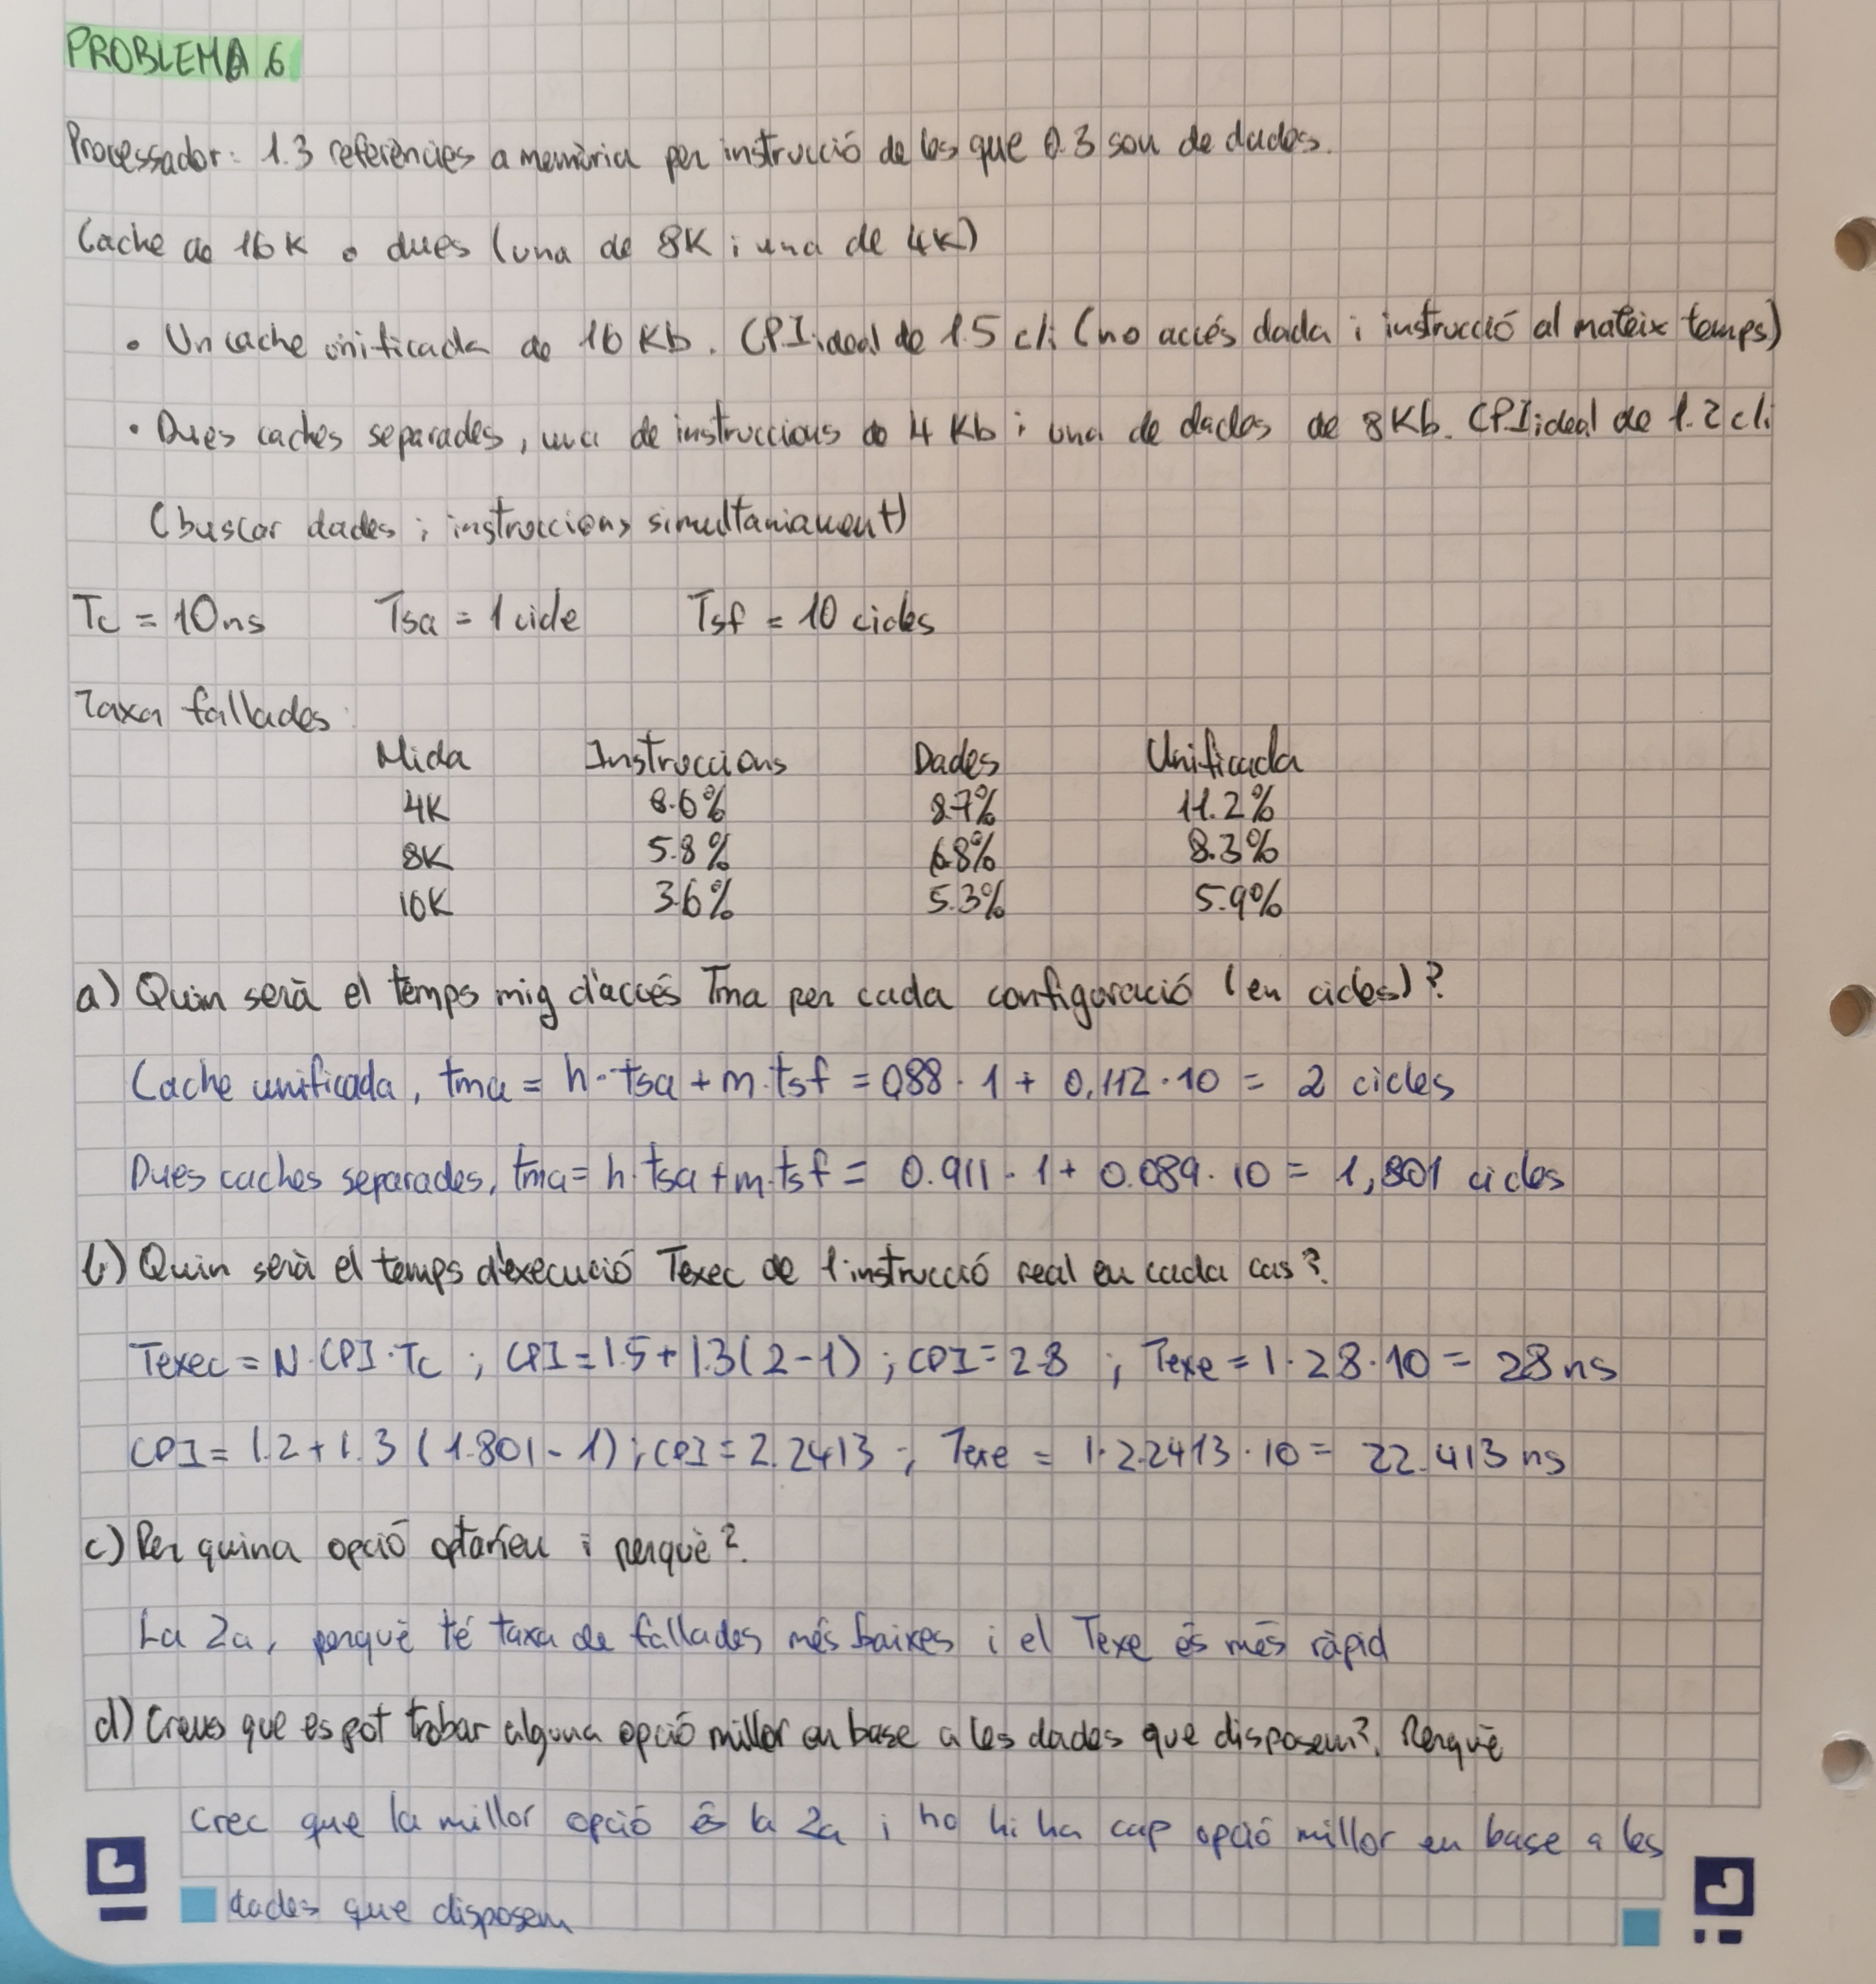 PROBLEMA 6
Processador: 1.3 referències a memòria per instrucció de les que 0.3 son de dades.
Cache de 16K o dues (una de 8K i una de 4K)
• Un cache unificada de 16 Kb. CPIideal de 1.5 c/i (no accés dada i instrucció al mateix temps)
• Dues caches separades, una de instruccions de 4 Kb i una de dades de 8Kb. CPIideal de 1.2 c/i
(buscar dades i instruccions simultaniament)
Tc = 10ns Tsa = 1 cicle Tsf = 10 cicles
Taxa fallades:
Mida Instruccions Dades Unificada
4K 8.6% 8.7% 11.2%
8K 5.8% 6.8% 8.3%
16K 3.6% 5.3% 5.9%
a) Quin serà el temps mig d'accés Tma per cada configuració (en cicles)?
Cache unificada, tma = h·tsa + m·tsf = 0,88 · 1 + 0,112 · 10 = 2 cicles
Dues caches separades, tma = h·tsa + m·tsf = 0.911 · 1 + 0.089 · 10 = 1,801 cicles
b) Quin serà el temps d'execució Texec de l'instrucció real en cada cas?
Texec = N·CPI·Tc ; CPI = 1.5 + 1.3(2-1) ; CPI = 2.8 ; Texe = 1 · 2.8 · 10 = 28 ns
CPI = 1.2 + 1.3 (1.801 - 1) ; CPI = 2.2413 ; Texe = 1 · 2.2413 · 10 = 22.413 ns
c) Per quina opció optarieu i perquè?.
La 2a, perquè té taxa de fallades més baixes i el Texe és més ràpid
d) Creus que es pot trobar alguna opció millor en base a les dades que disposem?. Perquè
Crec que la millor opció és la 2a i no hi ha cap opció millor en base a les
dades que disposem